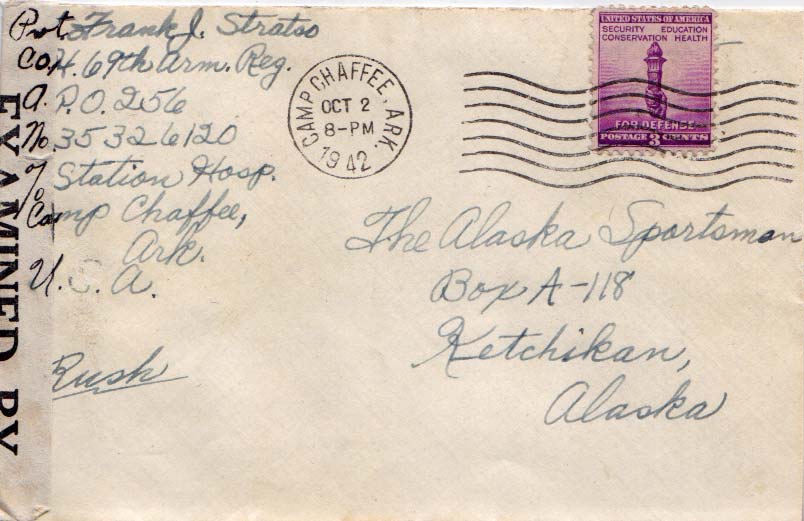 Pvt. Frank J. Stratso
Co. H. 69th Arm. Reg.
A. P.O. 256
No 35326120
% Station Hosp.
Camp Chaffee,
Ark.
U. S. A.
Rush
EXAMINED BY
CAMP CHAFFEE, ARK.
OCT 2
8-PM
1942
UNITED STATES OF AMERICA
SECURITY EDUCATION
CONSERVATION HEALTH
FOR DEFENSE
POSTAGE 3 CENTS
The Alaska Sportsman
Box A-118
Ketchikan,
Alaska